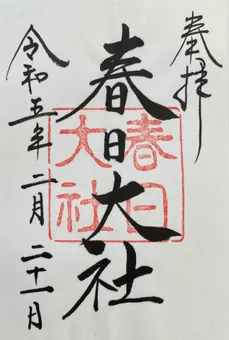 奉拝
春日大社
春日大社
令和五年二月二十一日